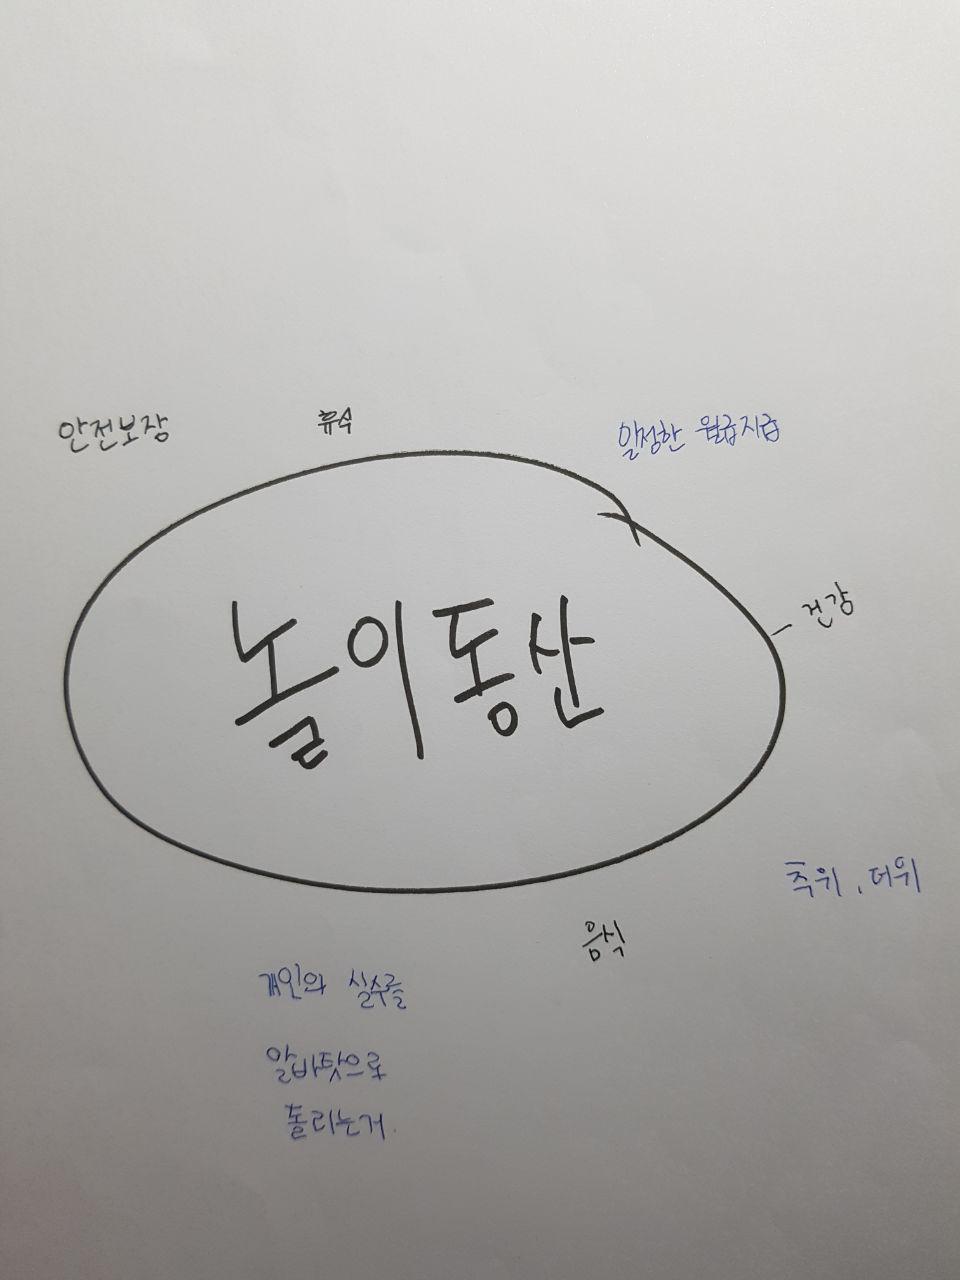 안전보장
휴식
일정한 월급지급
건강
놀이동산
추위, 더위
음식
개인의 실수를
알바탓으로
돌리는거.